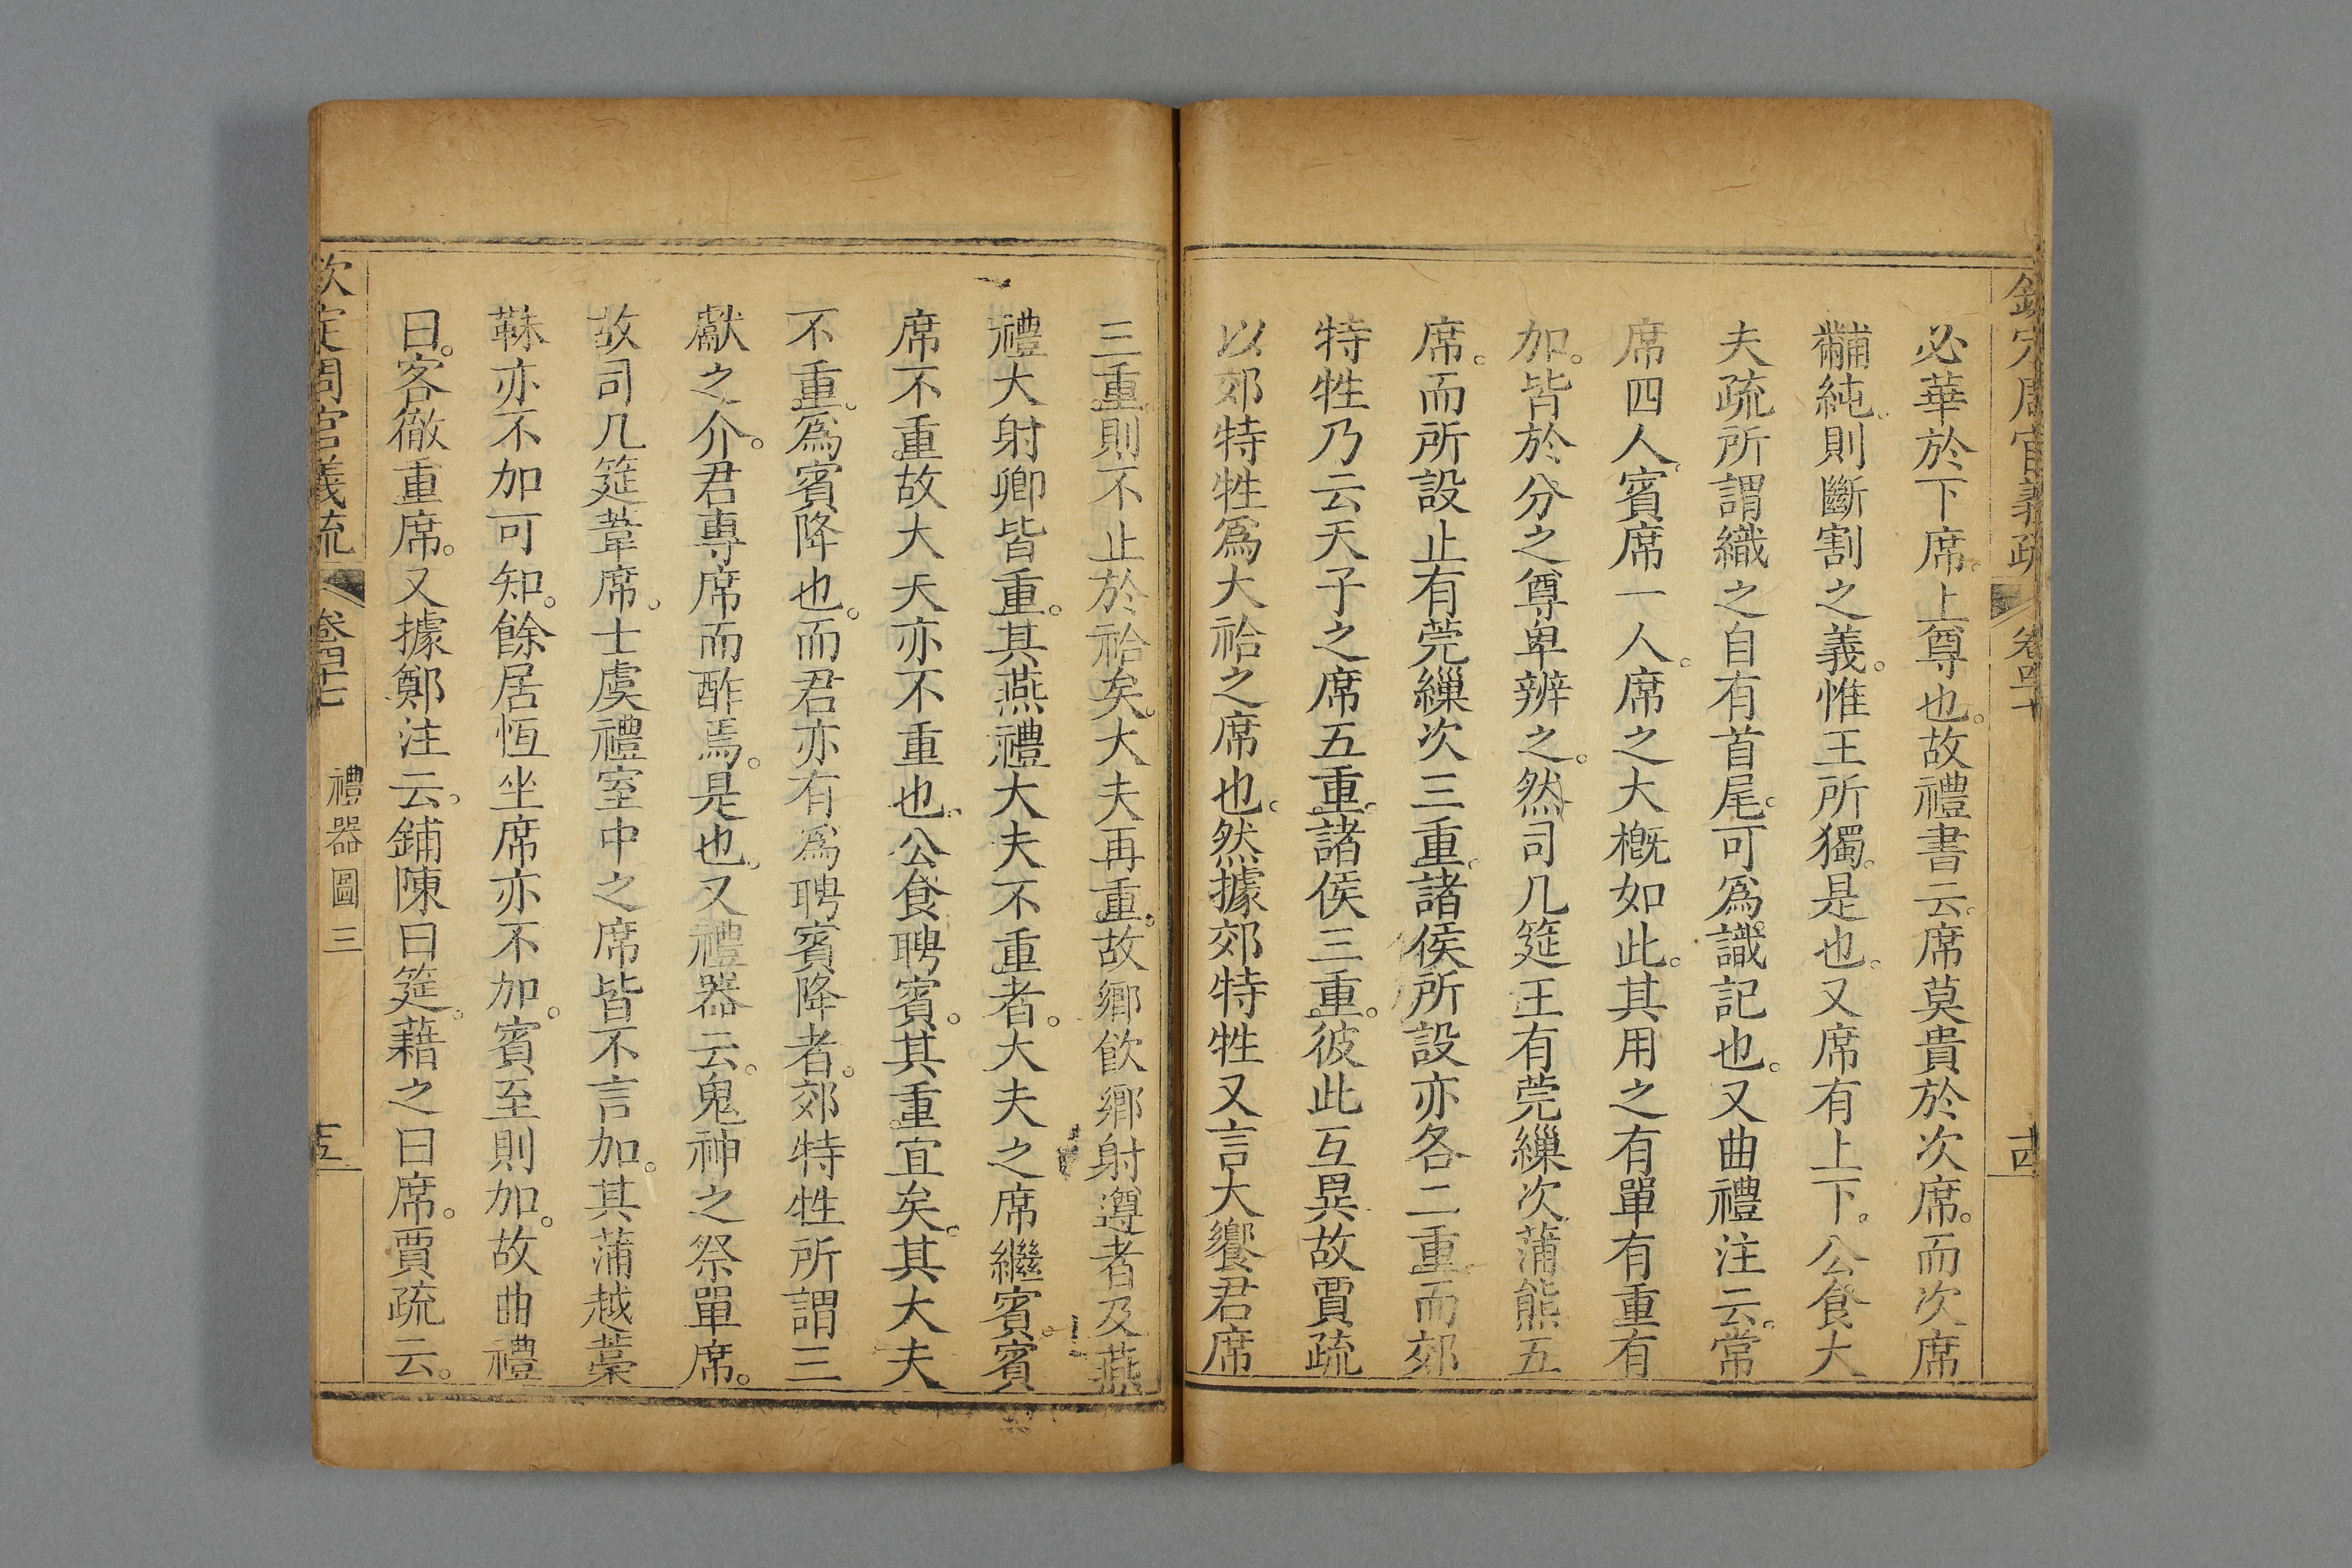 欽定周官義疏 卷四十 古
必華於下席。上尊也。故禮書云。席莫貴於次席。而次席
黼純。則斷割之義。惟王所獨。是也。又席有上下。公食大
夫疏所謂織之自有首尾。可爲識記也。又曲禮注云。常
席四人。賓席一人。席之大槪如此。其用之有單有重有
加。皆於分之尊卑辨之。然司几筵王有莞繅次蒲熊五
席。而所設止有莞繅次三重。諸侯所設亦各二重。而郊
特牲乃云天子之席五重。諸侯三重。彼此互異故賈疏
以郊特牲爲大祫之席也。然據郊特牲又言大饗君席
三重。則不止於祫矣。大夫再重。故鄉飮鄉射遵者及燕
禮大射卿皆重。其燕禮大夫不重者。大夫之席繼賓。賓
席不重故大夫亦不重也。公食聘賓。其重宜矣。其大夫
不重。爲賓降也。而君亦有爲聘賓降者。郊特牲所謂三
獻之介。君專席而酢焉。是也。又禮器云。鬼神之祭單席。
故司几筵葦席。士虞禮室中之席皆不言加。其蒲越藁
靺亦不加可知。餘居恆坐席亦不加。賓至則加。故曲禮
曰。客徹重席。又據鄭注云。鋪陳曰筵。藉之曰席。賈疏云。
欽定周官義疏 卷四十七 禮器圖三 五